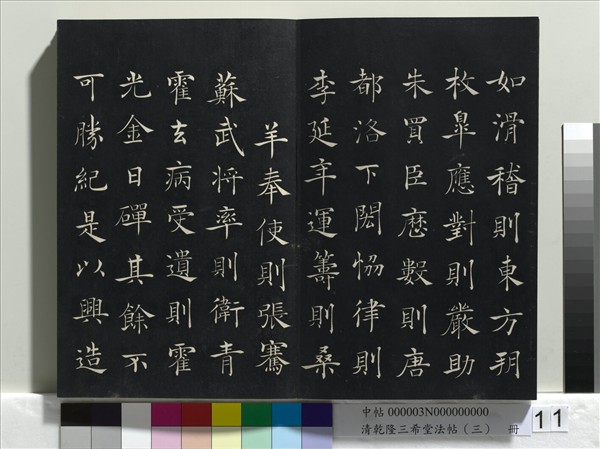 如滑稽則東方玥
枚臯應對則嚴助
朱買臣厯數則唐
都洛下閎恊律則
李延年運籌則桑
羊奉使則張騫
蘇武將率則衛青
霍去病受遺則霍
光金日磾其餘不
可勝紀是以興造
中帖 000003N000000000
清乾隆三希堂法帖（三） 冊
11